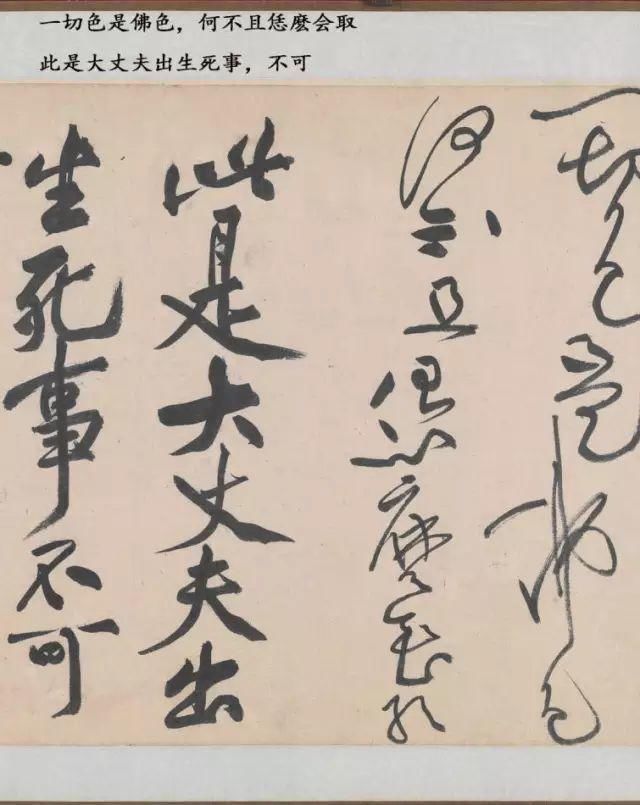 一切色是佛色，何不且恁麽会取
此是大丈夫出生死事，不可
一切色是佛色
何不且恁麽会取
此是大丈夫出
生死事不可